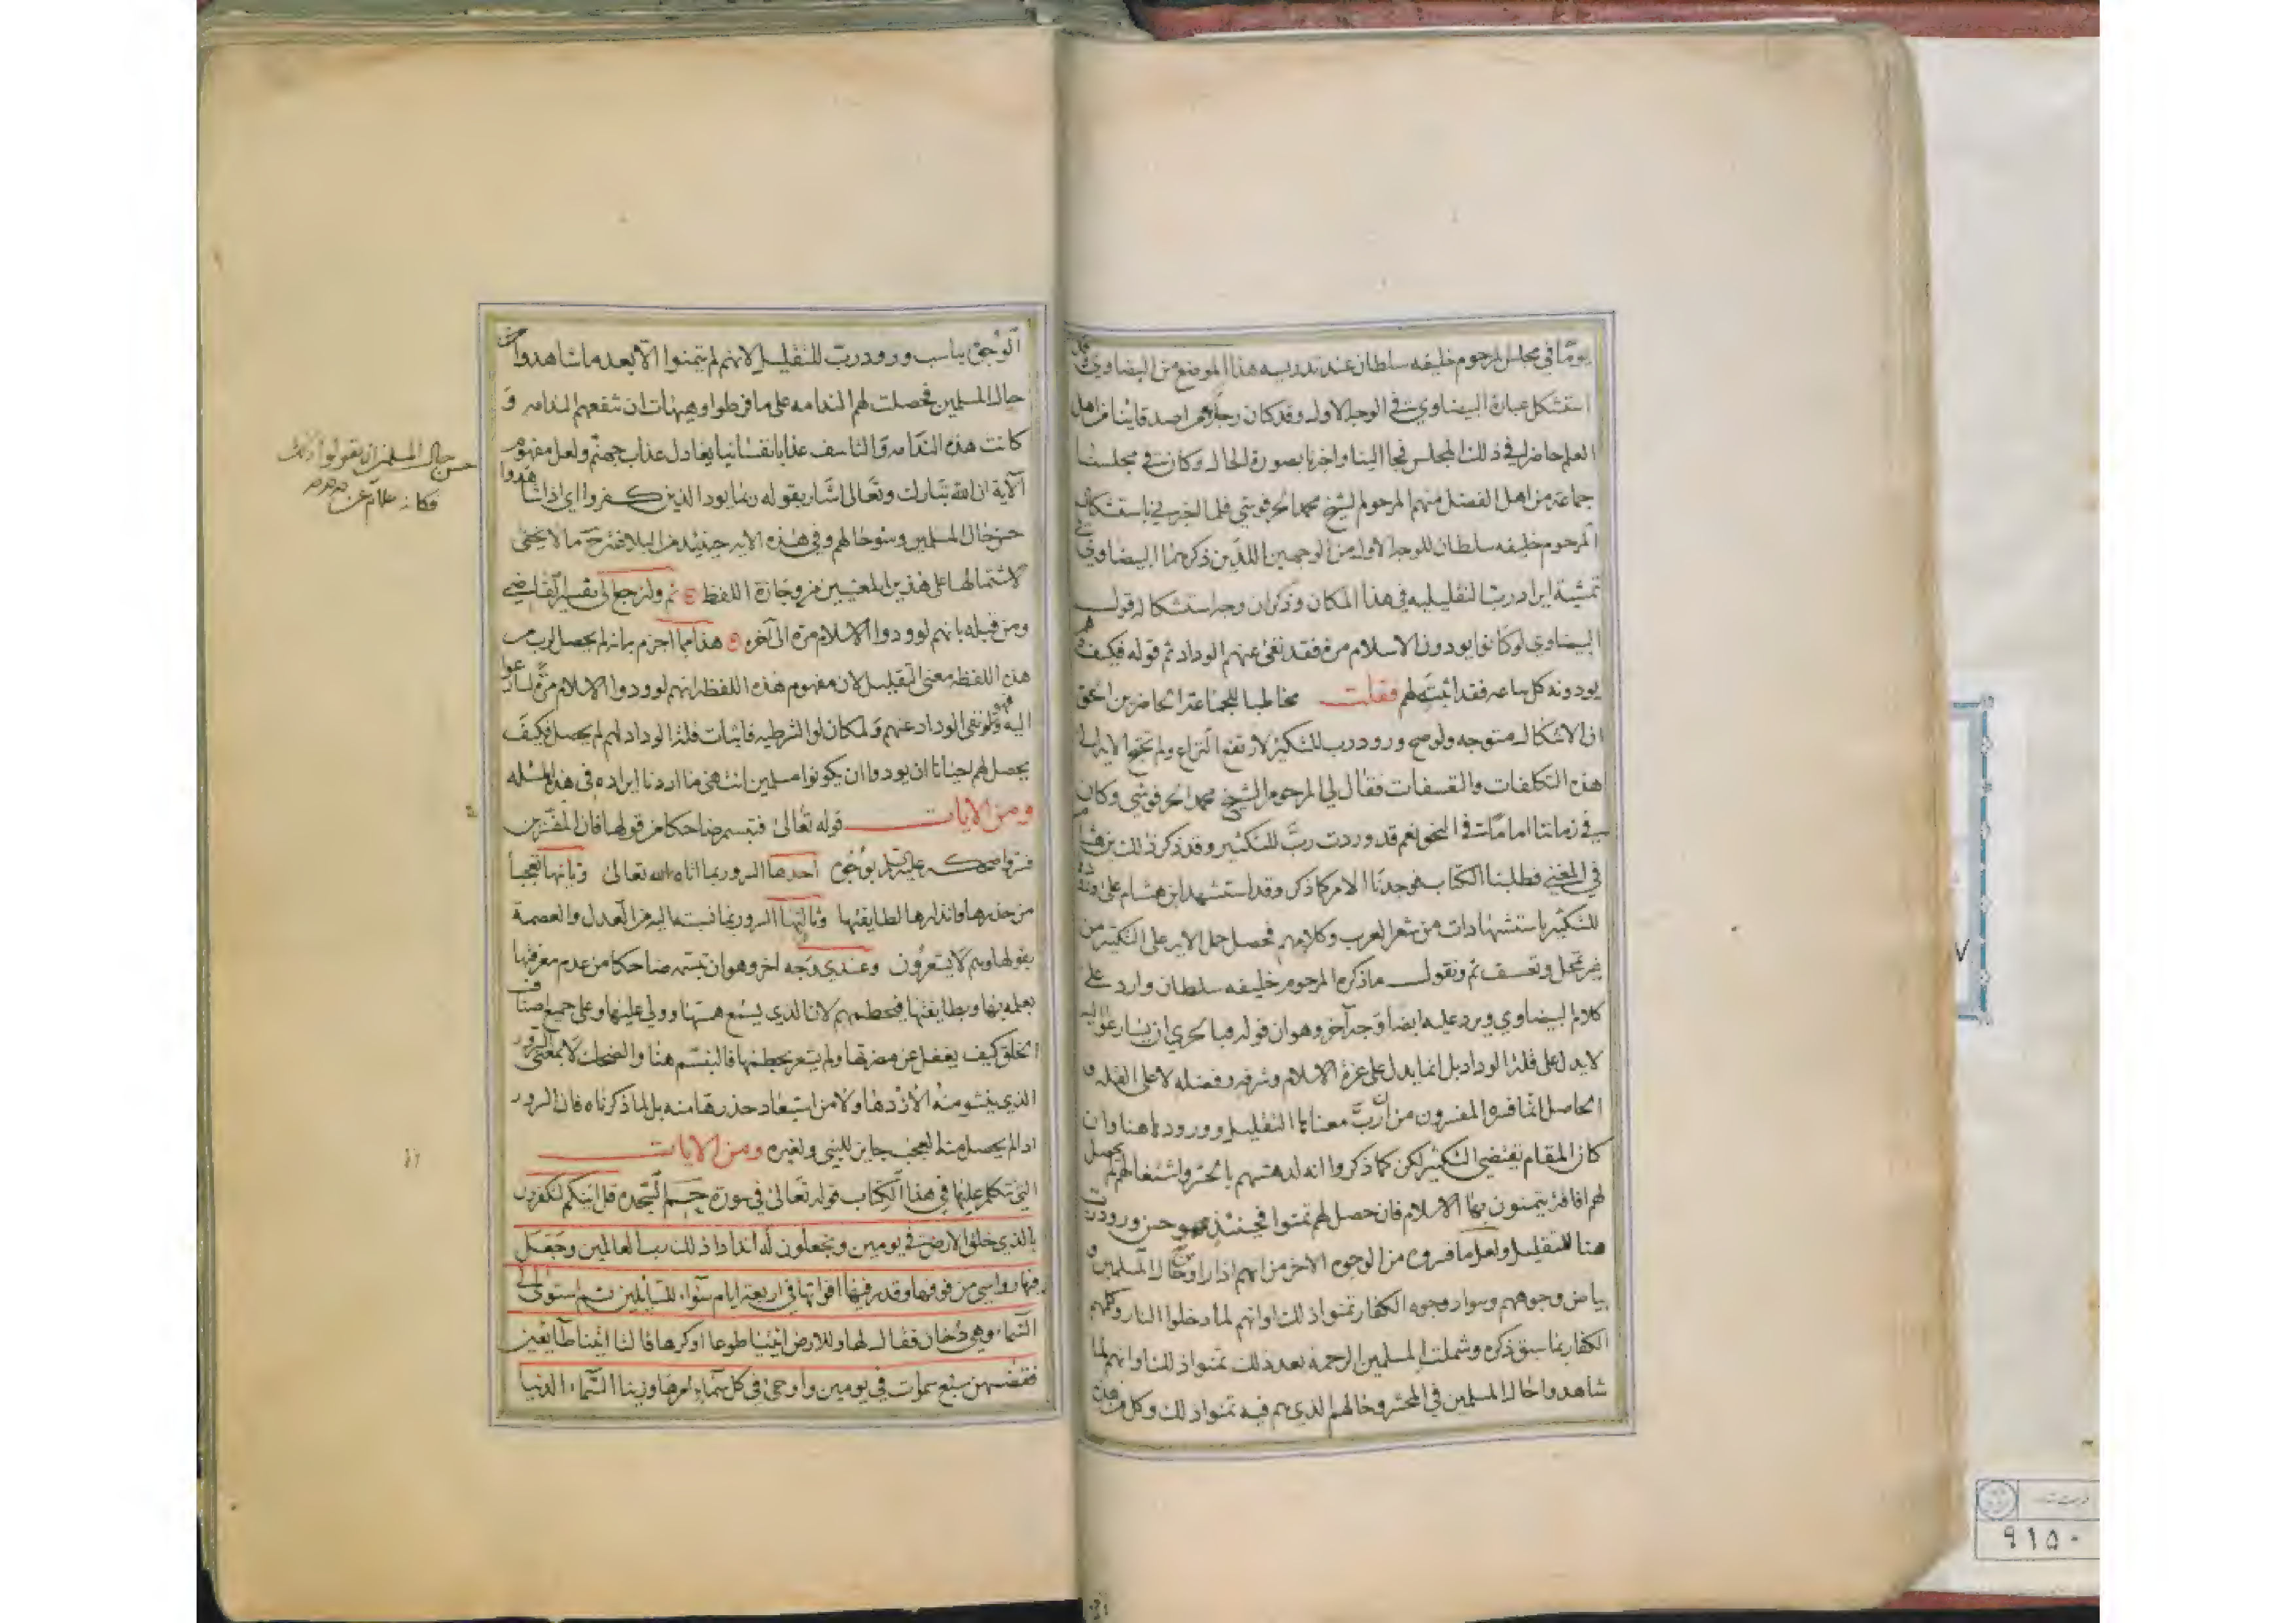 يومًا في مجلس المرحوم خليفه سلطان عند تدريسه هذا الموضع من البيضاوي وقد
استشكل عبارة البيضاوي في الوجه الاول وقد كان رجل من اصدقائنا من اهل
العلم حاضرا في ذلك المجلس فجا الينا واخبرنا بصورة الحال وكان في مجلسنا
جماعة من اهل الفضل منهم المرحوم الشيخ محمد الحرفوشي فلما اخبرني باستشكال
المرحوم خليفه سلطان للوجه الاول من الوجهين اللذين ذكرهما البيضاوي في
تمشية ايراد رب التقليليه في هذا المكان وذكر ان وجه استشكاله قول
البيضاوي لو كانوا يودون الاسلام مرة فقد نفى عنهم الوداد ثم قوله فكيف وهم
يودونه كل ساعه فقد اثبته لهم فقلت مخاطبا للجماعة الحاضرين الحق
ان الاشكال متوجه ولو صح ورود رب للتكثير لارتفع النزاع ولم نحتج الا
هذه التكلفات والتعسفات فقال لي المرحوم الشيخ محمد الحرفوشي وكان
في زماننا اماما في النحو نعم قد وردت ربّ للتكثير وقد ذكر ذلك ابن هشام
في المغني فطلبنا الكتاب فوجدنا الامر كما ذكر وقد استشهد ابن هشام على
للتكثير باستشهادات من شعر العرب وكلامهم فحصل حمل الايه على التكثير من
غير تمحل وتعسف ثم ونقول ما ذكره المرحوم خليفه سلطان وارد على
كلام البيضاوي ويرد عليه ايضا وجه آخر وهو ان قوله فبالحري ان يسارعوا اليه
لا يدل على قلة الوداد بل انما يدل على عزة الاسلام وشرفه وفضله لا على القله و
الحاصل انما فسره المفسرون من ان ربّ معناها التقليل وورودها هنا وان
كان المقام يقتضي التكثير لكن كما ذكروا انه لدهشتهم بالحشر واشتغالهم لم يحصل
لهم افاقة يتمنون بها الاسلام فان حصل لهم تمنوا فحينئذ فهو حسن ورود رب
هنا للتقليل ولعل ما فسروه من الوجوه الاخر من انهم اذا راوا حال المسلمين و
بياض وجوههم وسواد وجوه الكفار تمنوا ذلك او انهم لما دخلوا النار وكلهم
الكفار بما سبق ذكره وشملت المسلمين الرحمة بعد ذلك تمنوا ذلك او انهم لما
شاهدوا حال المسلمين في المحشر وحالهم الذي هم فيه تمنوا ذلك وكل من هذه
الوجوه يناسب ورود ربّ للتقليل لانهم لم يتمنوا الا بعد ما شاهدوا حسن
حال المسلمين فحصلت لهم الندامه على ما فرطوا وهيهات ان تنفعهم الندامه و
كانت هذه الندامه والتاسف عذابا نفسانيا يعادل عذاب جهنم ولعل مفهوم
الآية ان الله تبارك وتعالى اشار بقوله ربما يود الذين كفروا اي اذا شاهدوا
حسن حال المسلمين وسو حالهم وفي هذه الايه حينئذ من البلاغة ما لا يخفى
لاشتمالها على هذين المعنيين من وجازة اللفظ ثم ولنرجع الى تفسير القاضي
ومن قبله بانهم لو ودوا الاسلام مرة الى آخره هذا مما اجزم بانه لم يحصل لرب من
هذه اللفظه معنى التقليل لان مفهوم هذه اللفظه انهم لو ودوا الاسلام مرّة لسارعوا
اليه فهو نفي الوداد عنهم لمكان لو الشرطيه فاثبات قلة الوداد لهم لم يحصل فكيف
يحصل لهم احيانا ان يودوا ان يكونوا مسلمين انتهى ما اردنا ايراده في هذه المسئله
ومن الايات قوله تعالى فتبسم ضاحكا من قولها فان المفسرين
فسروا ضحكه عليه السلم بوجوه احدها السرور بما اتاه الله تعالى وثانيها تعجبا
من حذرها وانذارها لطايفتها وثالثها السرور بما نسبته اليه من العدل والعصمة
بقولها وهم لا يشعرون وعندي وجه اخر وهو ان تبسمه ضاحكا من عدم معرفتها
بعلمه بها وبطايفتها فيحطمهم لان الذي يسمع همسها وولي عليها وعلى جميع اصناف
الخلق كيف يغفل عن مضرتها ولم يشعر بحطمها فالتبسم هنا والضحك لا بمعنى السرور
الذي ينشو منه الازدهاء ولا من استبعاد حذرها منه بل لما ذكرناه فان السرور
اذا لم يحصل منه العجب جايز للنبي ولغيره ومن الايات
التي تكلم عليها في هذا الكتاب قوله تعالى في سورة حم السجده قل ائنكم لتكفرون
بالذي خلق الارض في يومين وتجعلون له اندادا ذلك رب العالمين وجعل
فيها رواسي من فوقها وقدر فيها اقواتها في اربعة ايام سواء للسايلين ثم استوى الى
السماء وهي دخان فقال لها وللارض ائتيا طوعا او كرها قالتا اتينا طايعين
فقضيهن سبع سموات في يومين واوحى في كل سماء امرها وزينا السماء الدنيا
حسن حال المسلمين ان يقولوا ذلك
فكانه علم عن
٩١٥٠